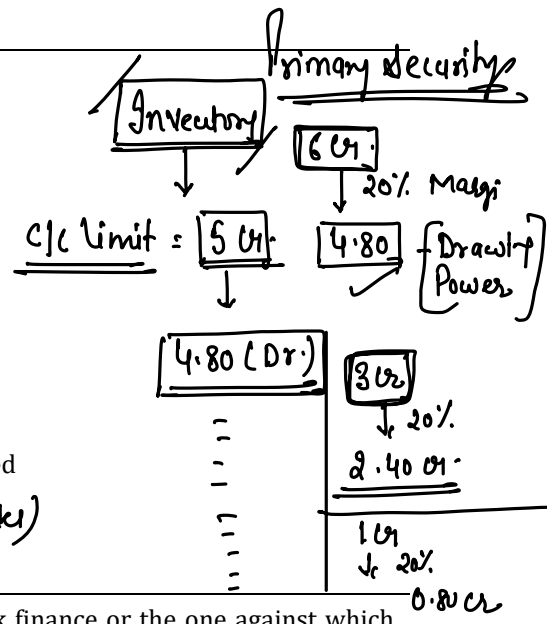 Primary Security
Inventory
6 Cr.
20% Margi
C/C limit = 5 Cr. 4.80
Power
4.80 (Dr.)
3 Cr
20%
ed
2.40 Cr.
1 Cr
20%
0.80 Cr
finance or the one against which